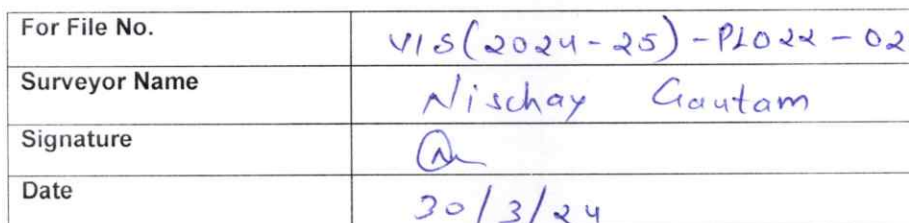 For File No. VIS(2024-25)-PL022-02
Surveyor Name Nischay Gautam
Signature
Date 30/3/24